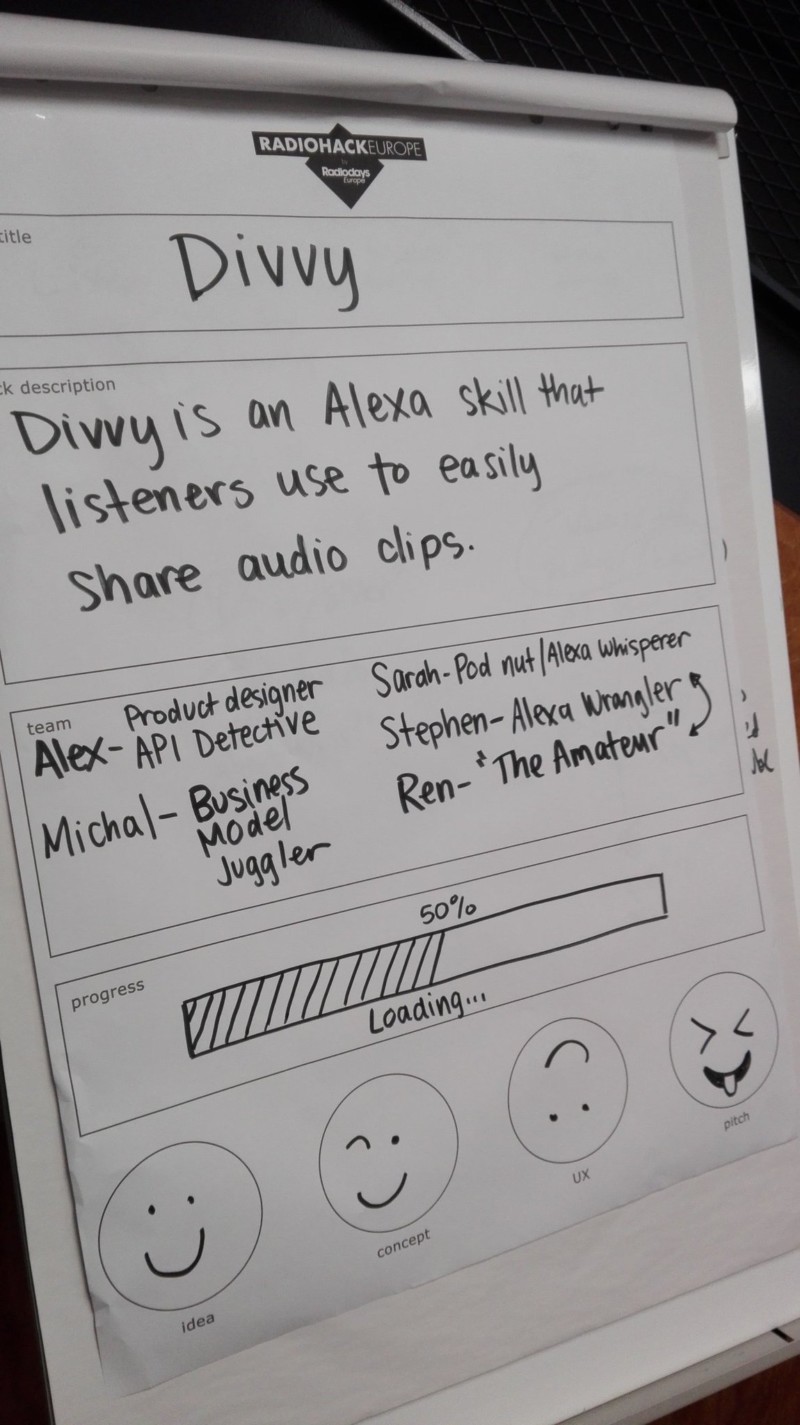 RADIOHACKEUROPE
by
Radiodays
Europe
title
Divvy
ck description
Divvy is an Alexa skill that
listeners use to easily
share audio clips.
team
Alex- Product designer
API Detective
Michal- Business
Model
Juggler
Sarah-Pod nut/Alexa Whisperer
Stephen- Alexa Wrangler
Ren- "The Amateur"
progress
50%
Loading...
idea
concept
UX
pitch